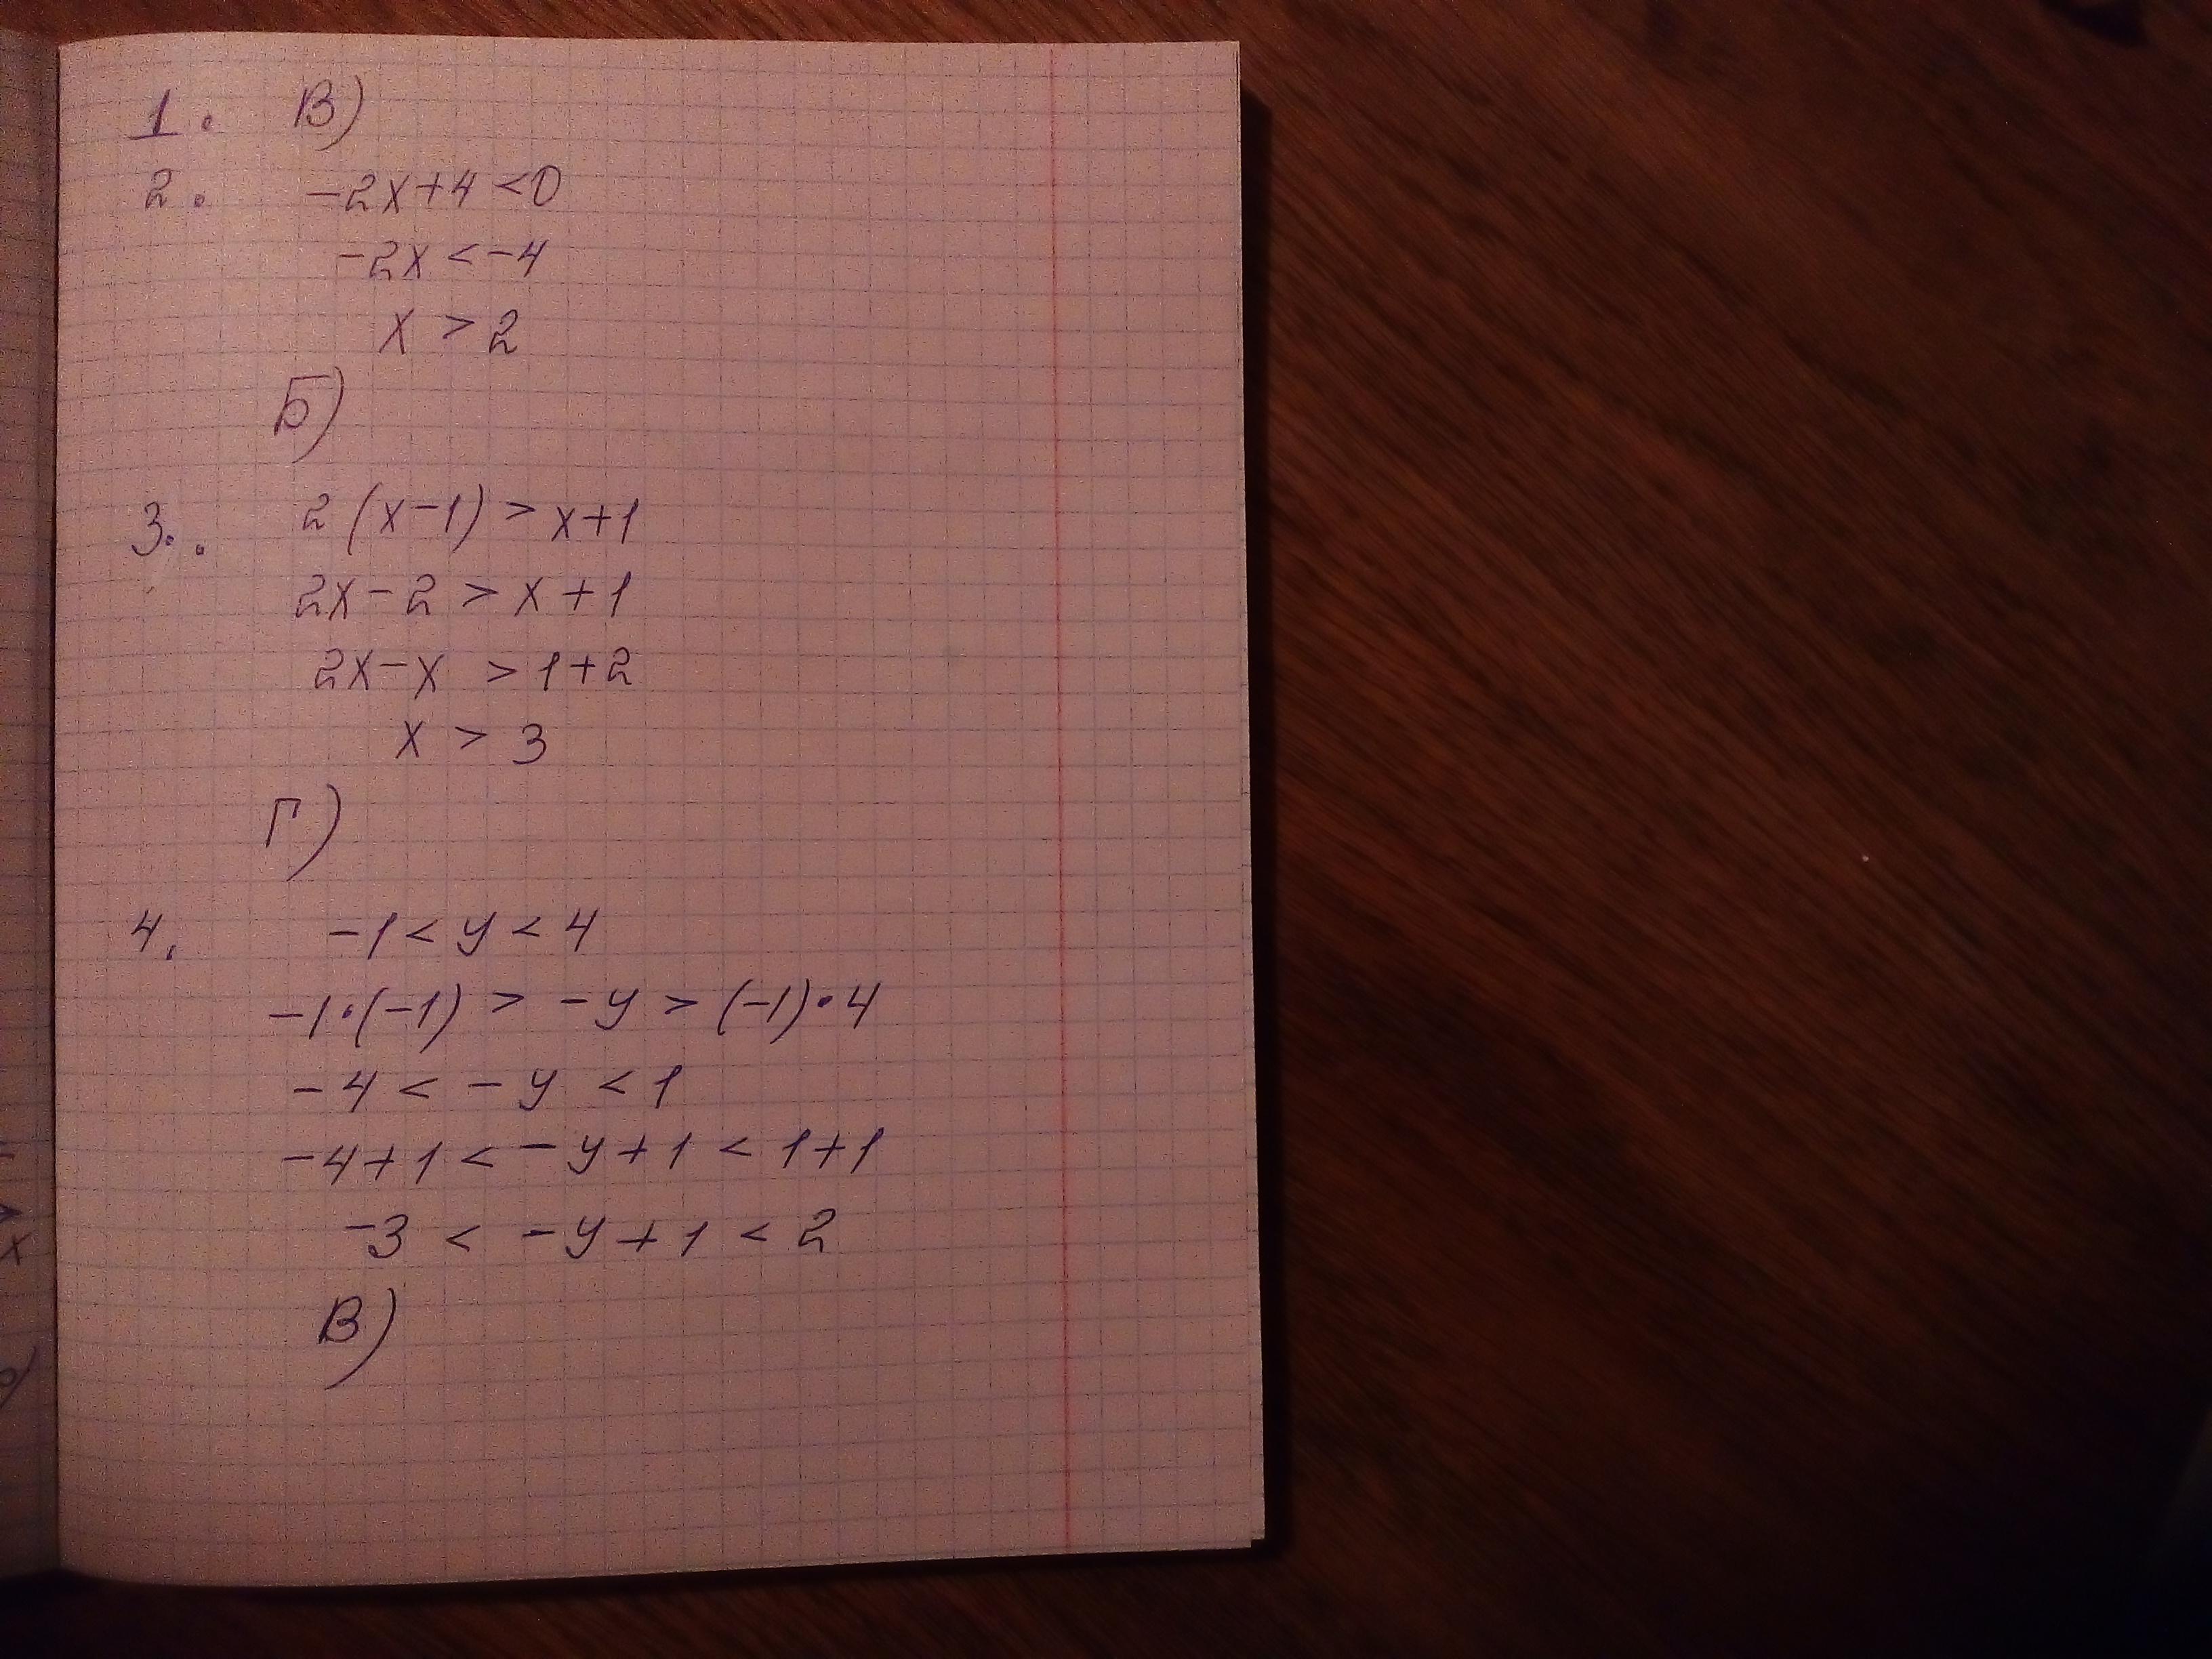 1. В)
2. -2x+4<0
-2x<-4
x>2
Б)
3.. 2(x-1)>x+1
2x-2>x+1
2x-x>1+2
x>3
Г)
4. -1<y<4
-1·(-1)>-y>(-1)·4
-4<-y<1
-4+1<-y+1<1+1
-3<-y+1<2
В)